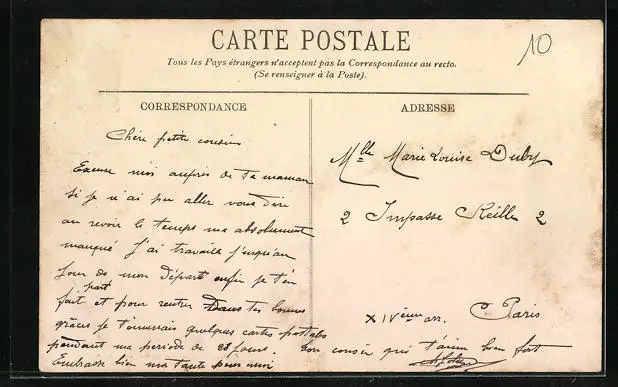 CARTE POSTALE
10
Tous les Pays étrangers n'acceptent pas la Correspondance au recto.
(Se renseigner à la Poste).
CORRESPONDANCE
ADRESSE
Chère petite cousine
Excuse moi auprès de ta maman
si je n'ai pu aller vous dire
au revoir le temps m'a absolument
manqué J'ai travaillé jusqu'au
jour de mon départ enfin je t'en
fait part et pour rentrer Dans tes bonnes
grâces je t'enverrais quelques cartes postales
pendant ma période de 23 jours. Ton cousin qui t'aime bien fort
Embrasse bien ma tante pour moi
Mlle Marie Louise Duby
2 Impasse Réille 2
XIVème arr. Paris